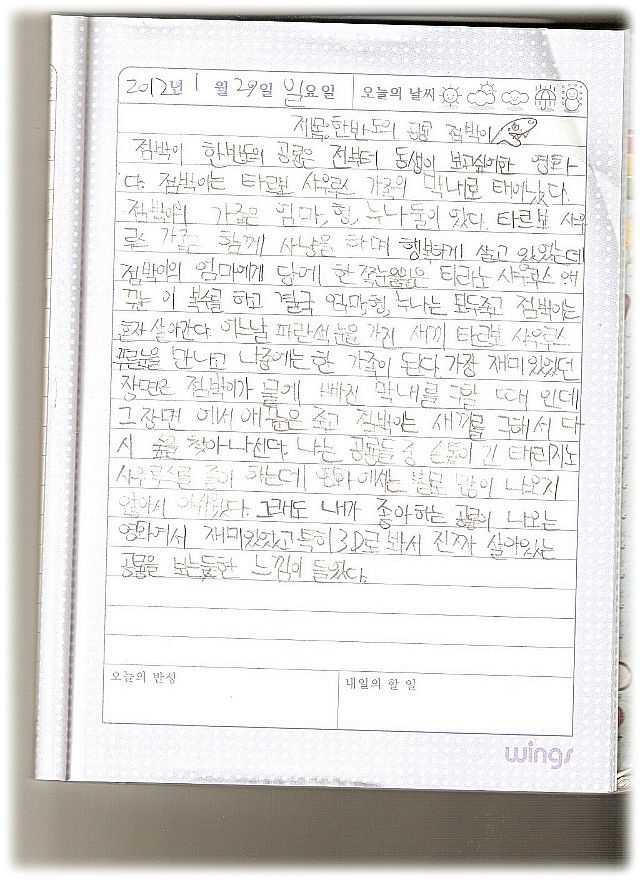 2012년 1 월 29일 일요일 오늘의 날씨
제목:한반도의 공룡 점박이
점박이 한반도의 공룡은 전부터 동생이 보고싶어한 영화
다. 점박이는 타르보 사우루스 가족의 막내로 태어났다.
점박이의 가족은 엄마, 형, 누나들이 있다. 타르보 사우
루스 가족은 함께 사냥을 하며 행복하게 살고 있었는데
점박이의 엄마에게 당해 한쪽눈을잃은 티라노 사우루스 애
꾸눈 이 복수를 하고 결국 엄마,형, 누나는 모두죽고 점박이는
혼자 살아간다. 어느날 파란색눈을 가진 새끼 타르보 사우루스
푸른눈을 만나고 나중에는 한 가족이 된다. 가장 재미있었던
장면은 점박이가 물에 빠진 막내를 구할 때 인데
그 장면 에서 애꾸눈은 죽고 점박이는 새끼를 구해서 다
시 숲을 찾아 나선다. 나는 공룡들 중 손톱이 긴 테리지노
사우루스를 좋아 하는데 영화 에서는 별로 많이 나오지
않아서 아쉬웠다. 그래도 내가 좋아하는 공룡이 나오는
영화여서 재미있었고 특히 3D로 봐서 진짜 살아있는
공룡을 보는듯한 느낌이 들었다.
오늘의 반성 내일의 할 일
wings